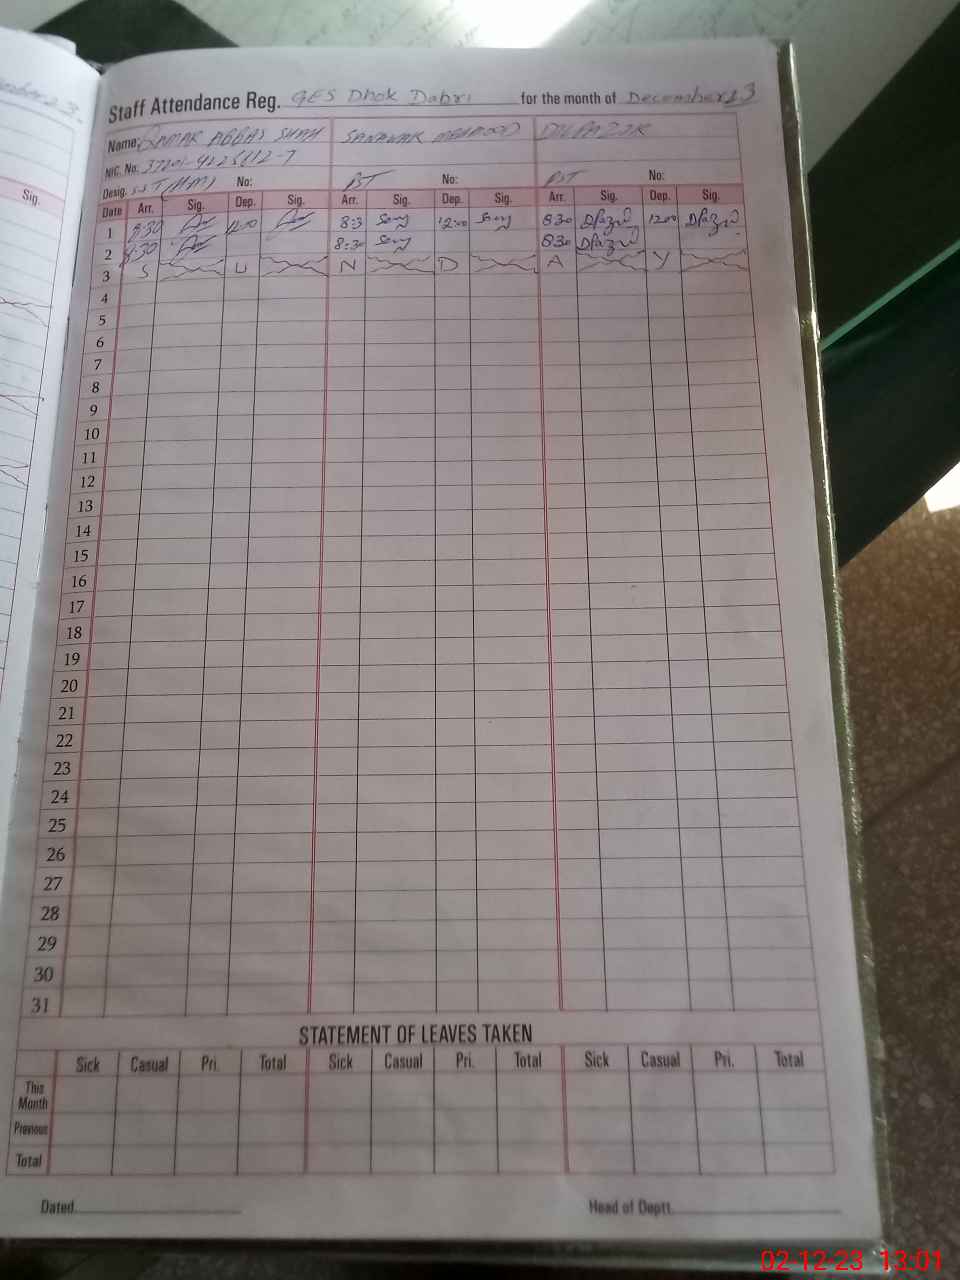 Staff Attendance Reg. GES Dhok Dabri for the month of December 23
Name: QAMAR ABBAS SHAH MEHMOOD
NIC. No.
Desig. SST (HM) No: PST No: PST No:
Date Arr. Sig. Dep. Sig. Arr. Sig. Dep. Sig. Arr. Sig. Dep. Sig.
1 8:30 12:00 8:3 12:00 830 1200
2 8:30 8:30 830
3 S U N D A Y
4
5
6
7
8
9
10
11
12
13
14
15
16
17
18
19
20
21
22
23
24
25
26
27
28
29
30
31
STATEMENT OF LEAVES TAKEN
Sick Casual Pri. Total Sick Casual Pri. Total Sick Casual Pri. Total
This Month
Previous
Total
Dated Head of Deptt.
02-12-23 13:01
Sig.